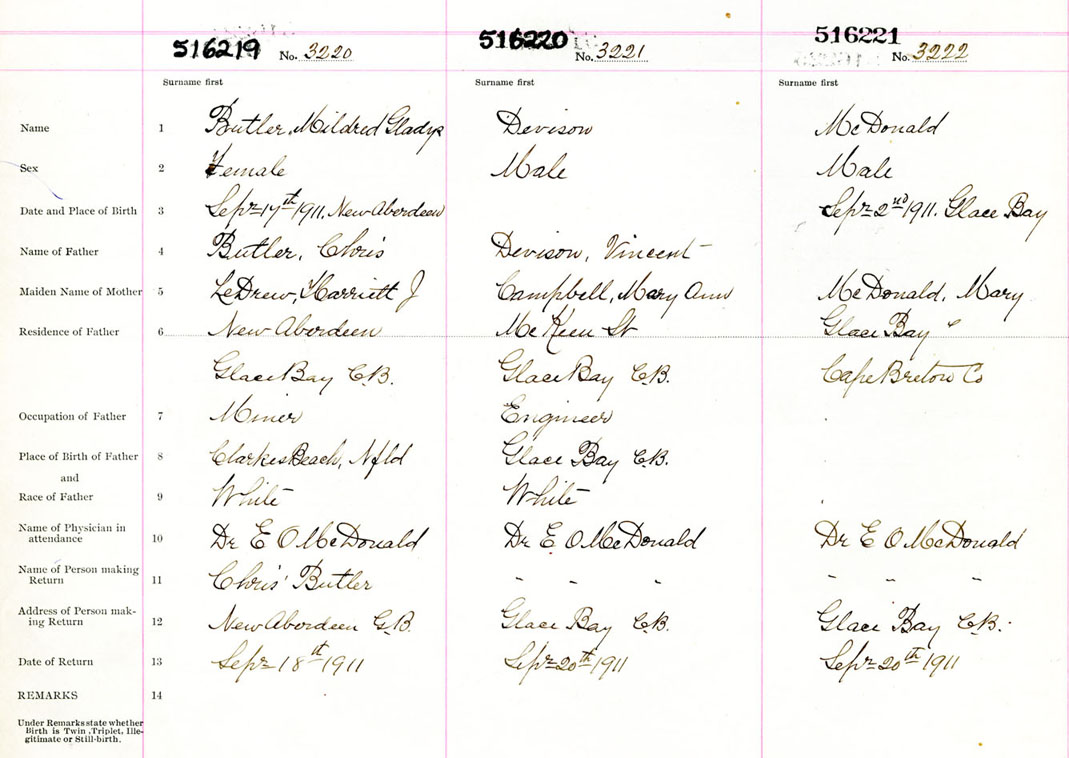 516219 No. 3220 516220 No. 3221 516221 No. 3222
Surname first Surname first Surname first
Name 1 Butler, Mildred Gladys Devison McDonald
Sex 2 Female Male Male
Date and Place of Birth 3 Sepr 17th 1911. New Aberdeen Sepr 2nd 1911. Glace Bay
Name of Father 4 Butler, Chris Devison, Vincent
Maiden Name of Mother 5 LeDrew, Harriett J Campbell, Mary Ann McDonald, Mary
Residence of Father 6 New Aberdeen McKeen St Glace Bay
Glace Bay C.B. Glace Bay C.B. Cape Breton Co
Occupation of Father 7 Miner Engineer
Place of Birth of Father 8 Clarkes Beach, Nfld Glace Bay C.B.
and
Race of Father 9 White White
Name of Physician in
attendance 10 Dr E O McDonald Dr E. O McDonald Dr E O McDonald
Name of Person making
Return 11 Chris' Butler " " " " " "
Address of Person mak-
ing Return 12 New Aberdeen G.B. Glace Bay C.B. Glace Bay C.B.
Date of Return 13 Sepr 18th 1911 Sepr 20th 1911 Sepr 20th 1911
REMARKS 14
Under Remarks state whether
Birth is Twin, Triplet, Ille-
gitimate or Still-birth.